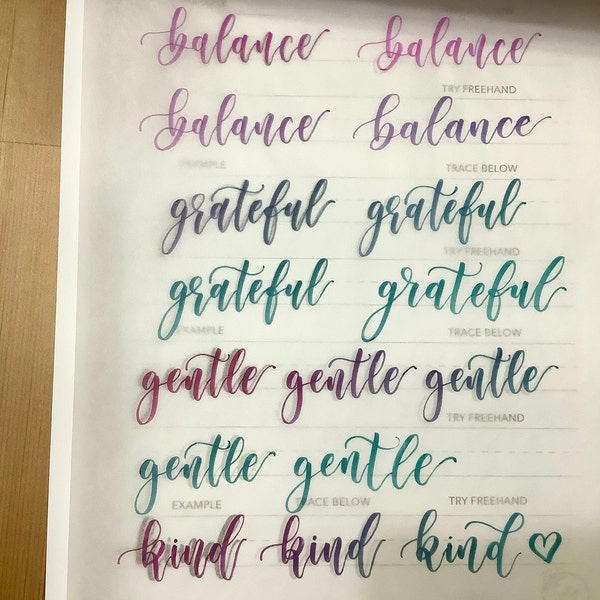 balance balance
TRY FREEHAND
balance balance
EXAMPLE TRACE BELOW
grateful grateful
TRY FREEHAND
grateful grateful
EXAMPLE TRACE BELOW
gentle gentle gentle
TRY FREEHAND
gentle gentle
EXAMPLE TRACE BELOW TRY FREEHAND
kind kind kind